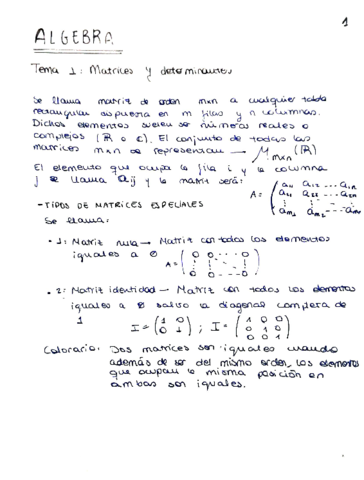 1
ALGEBRA
Tema 1: Matrices y determinantes
Se llama matriz de orden mxn a cualquier tabla
rectangular dispuesta en m filas y n columnas.
Dichos elementos suelen ser números reales o
complejos (R o C). El conjunto de todas las
matrices mxn se representan → M mxn (R)
El elemento que ocupa la fila i y la columna
j se llama aij y la matriz será: A = ( a11 a12 ... a1n
a21 a22 ... a2n
am1 am2 ... amn )
-TIPOS DE MATRICES ESPECIALES
Se llama:
· 1: Matriz nula → Matriz con todos los elementos
iguales a 0 A = ( 0 0 ... 0
0 0 ... 0 )
· 2: Matriz identidad → Matriz con todos los elementos
iguales a 0 salvo la diagonal completa de
1 I = ( 1 0
0 1 ) ; I = ( 1 0 0
0 1 0
0 0 1 )
Colorario: Dos matrices son iguales cuando
además de ser del mismo orden, los elementos
que ocupan la misma posición en
ambas son iguales.